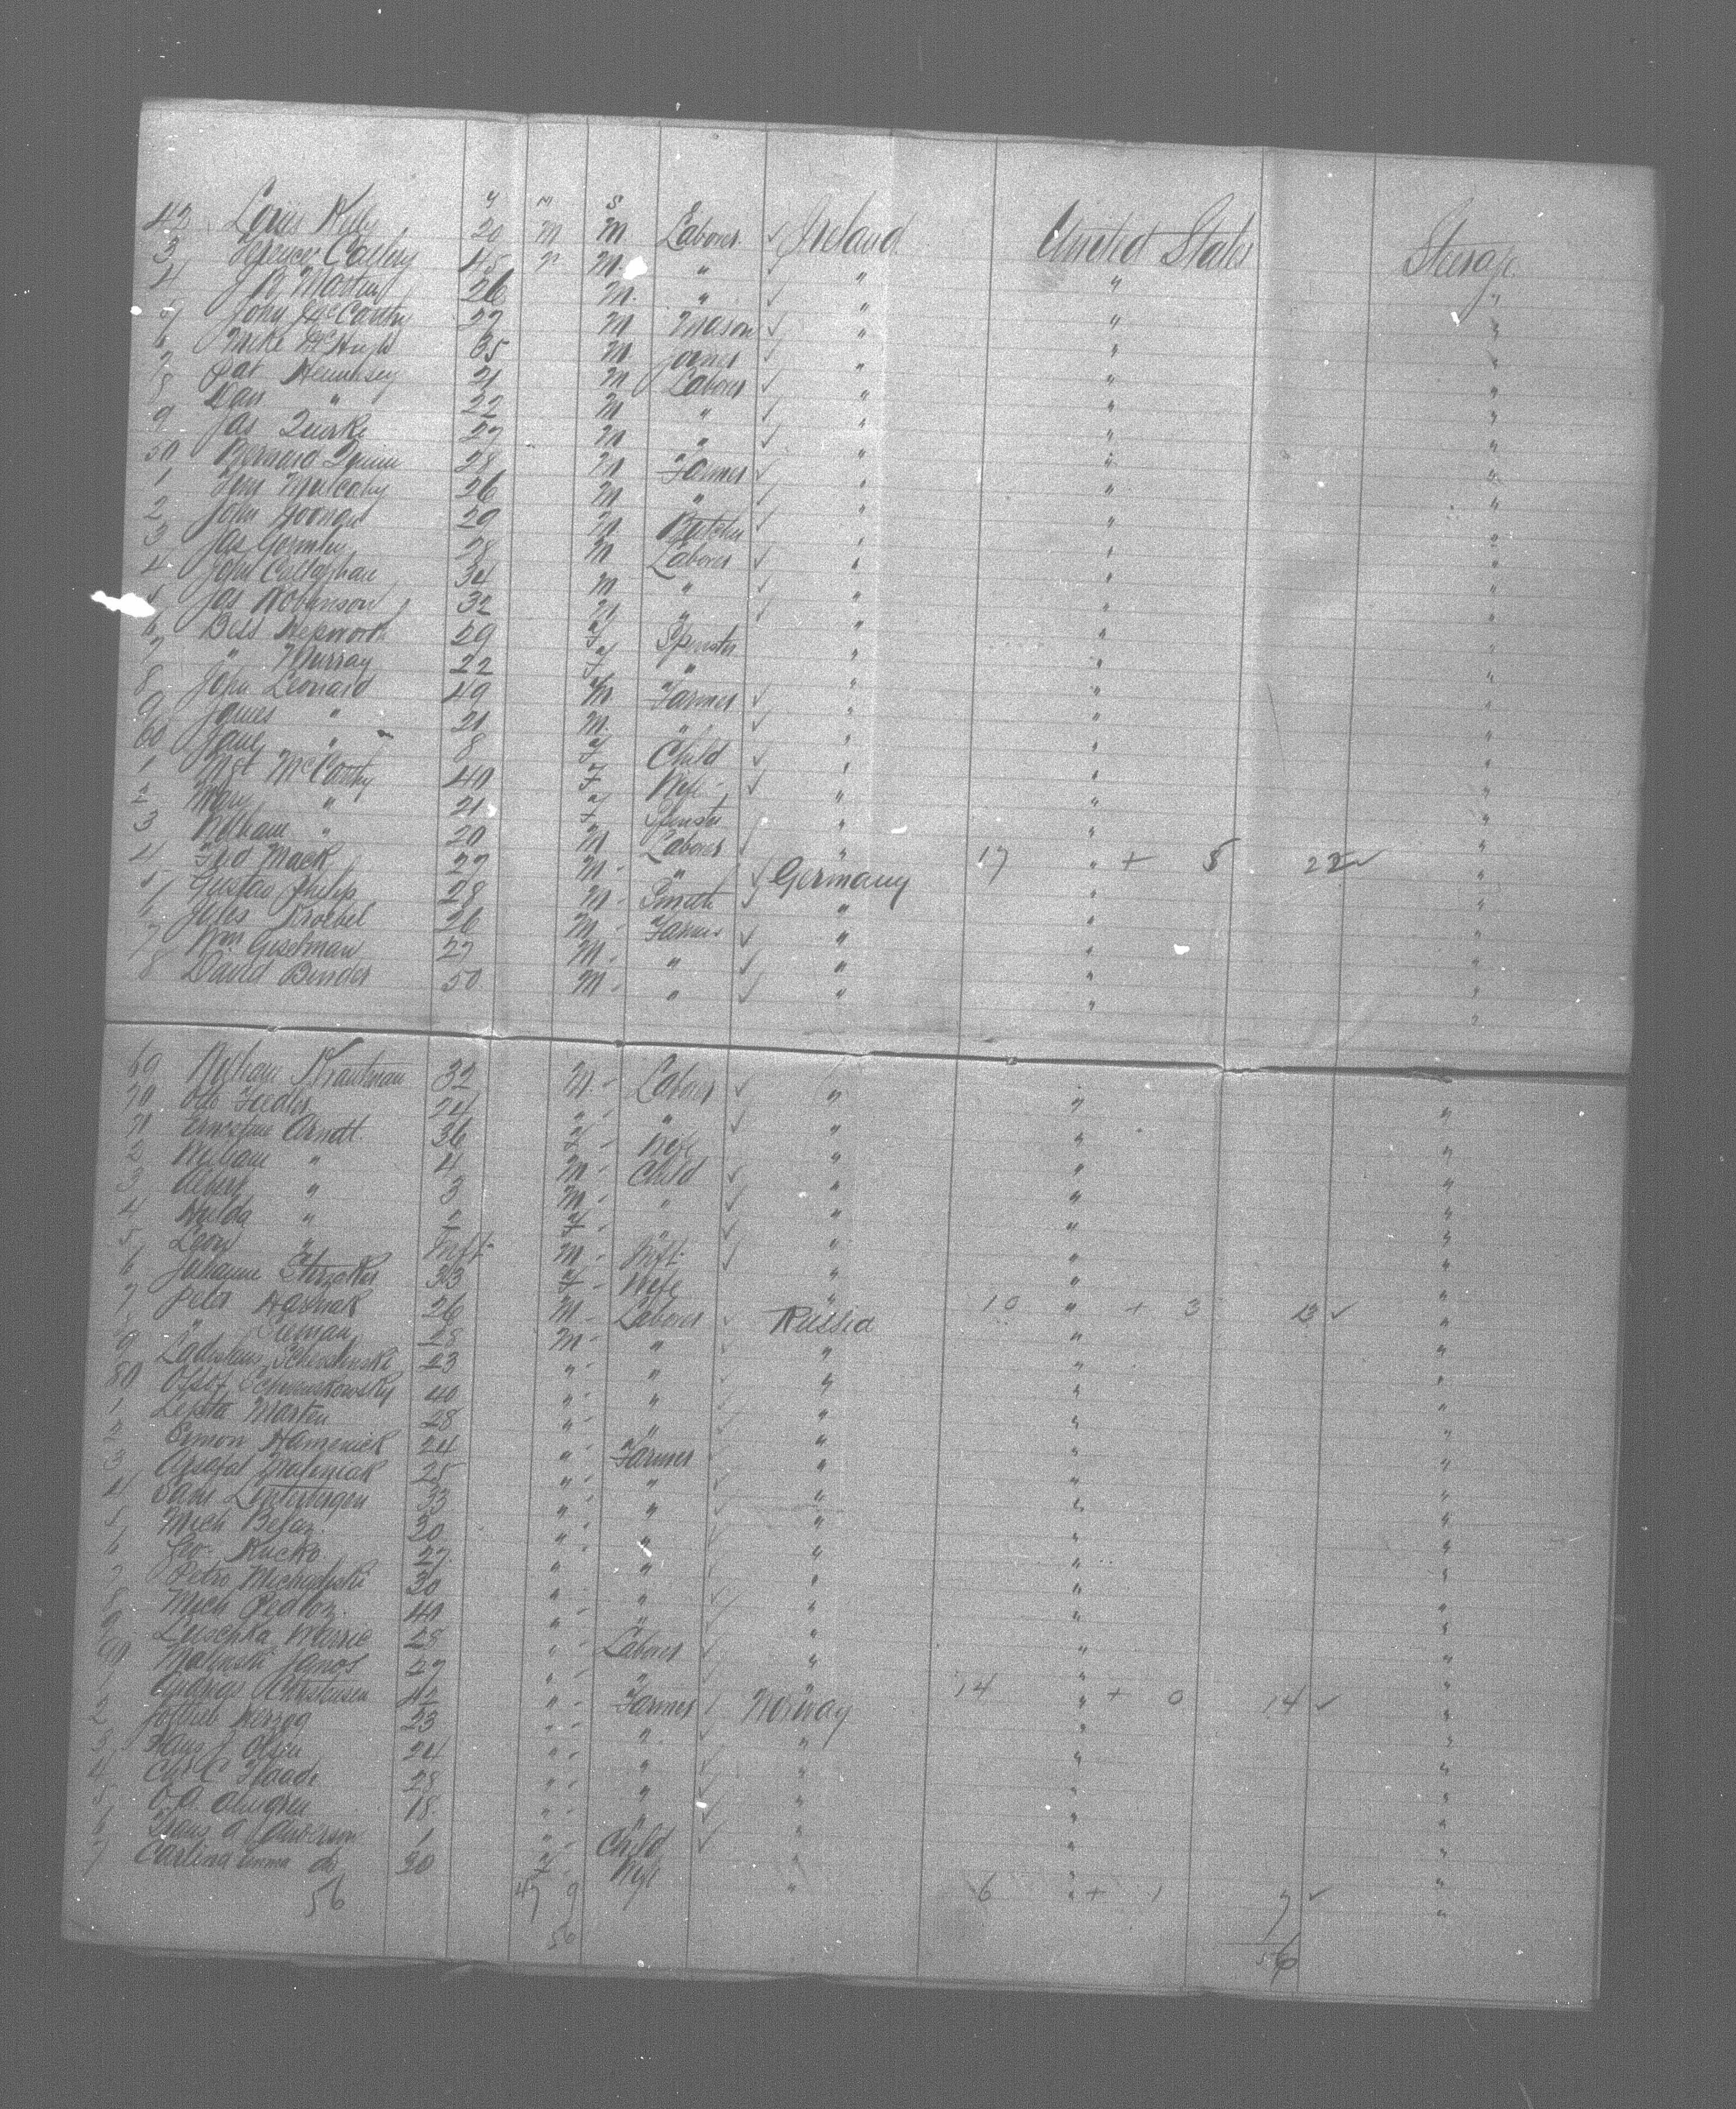 y m s
42 Louis Kelly 20 m M Laborer ✓ Ireland United States Steerage
3 Carley 45 " M. " ✓ " " "
4 Martin 26 M. " ✓ " " "
5 John McCarthy 27 M Mason ✓ " " "
6 Mike McHugh 35 M. Joiner ✓ " " "
7 Pat Hennesey 21 M Laborer ✓ " " "
8 Dan " 22 M " ✓ " " "
9 Jas Quirke 27 M " ✓ " " "
50 Bernard Quinn 28 M Farmer ✓ " " "
1 Mulcahy 26 M " ✓ " " "
2 John Noonan 29 M. Butcher ✓ " " "
3 Jas Gormley 28 M Laborer ✓ " " "
4 John Callaghan 34 M " ✓ " " "
5 Jas Robinson 32 M " ✓ " " "
6 Bess Hepworth 29 F Spinster " " "
7 " Murray 22 F " " " "
8 John Leonard 49 M Farmer ✓ " " "
9 James " 21 M. " ✓ " " "
60 Jane " 8 F Child ✓ " " "
1 Mgt McCarthy 40 F Wife ✓ " " "
2 Mary " 21 F Spinster " " "
3 William " 20 M Laborer ✓ " " "
4 Fred Mack 27 M - " ✓ Germany 17 " + 5 22 ✓ "
5 Gustav Philip 28 M - Smith ✓ " " "
6 Jules Kroebel 26 M - Farmer ✓ " " "
7 Wm Giselman 27 M - " ✓ " " "
8 David Binder 50 M - " ✓ " " "
69 Wilhelm Trautman 32 M. - Laborer ✓ " " "
70 Otto Fiedler 24 " - " ✓ " " "
71 Ernestine Arndt 36 F - Wife " " "
2 William " 4 M - Child ✓ " " "
3 Albert " 3 M - " ✓ " " "
4 Hulda " 2 F - " ✓ " " "
5 Leon " Inft M - Inft. ✓ " " "
6 Johanne 33 F - Wife " " "
7 Peter Hasnak 26 M - Laborer ✓ Russia 10 " + 3 13 ✓ "
8 " 28 M - " ✓ " " "
9 Ladislaus 23 " - " ✓ " " "
80 40 " - " ✓ " " "
1 Marten 28 " - " ✓ " " "
2 Simon Hamenick 24 " - Farmer ✓ " " "
3 Maliniak 25 " - " ✓ " " "
4 Sam 33 " - " ✓ " " "
5 Mich 30 " - " ✓ " " "
6 Geo. Kucko 27 " - " ✓ " " "
7 Petro Michalski 30 " - " ✓ " " "
8 Mich 40 " - " ✓ " " "
9 Luschka 28 " - Laborer ✓ " " "
90 Malinski Janos 27 " - " ✓ " " "
1 Andreas Christensen 42 " - Farmer ✓ Norway 14 " + 0 14 ✓ "
2 Gottlieb Herzog 23 " - " ✓ " " "
3 Hans J Olsen 24 " - " ✓ " " "
4 Chr C 28 " - " ✓ " " "
5 O. A. Almgren 18 " - " ✓ " " "
6 A Anderson 1 " - Child ✓ " " "
7 Carlina Emma do 30 F - Wife " " "
56 47 9 6 " + 1 7 ✓ "
56 56